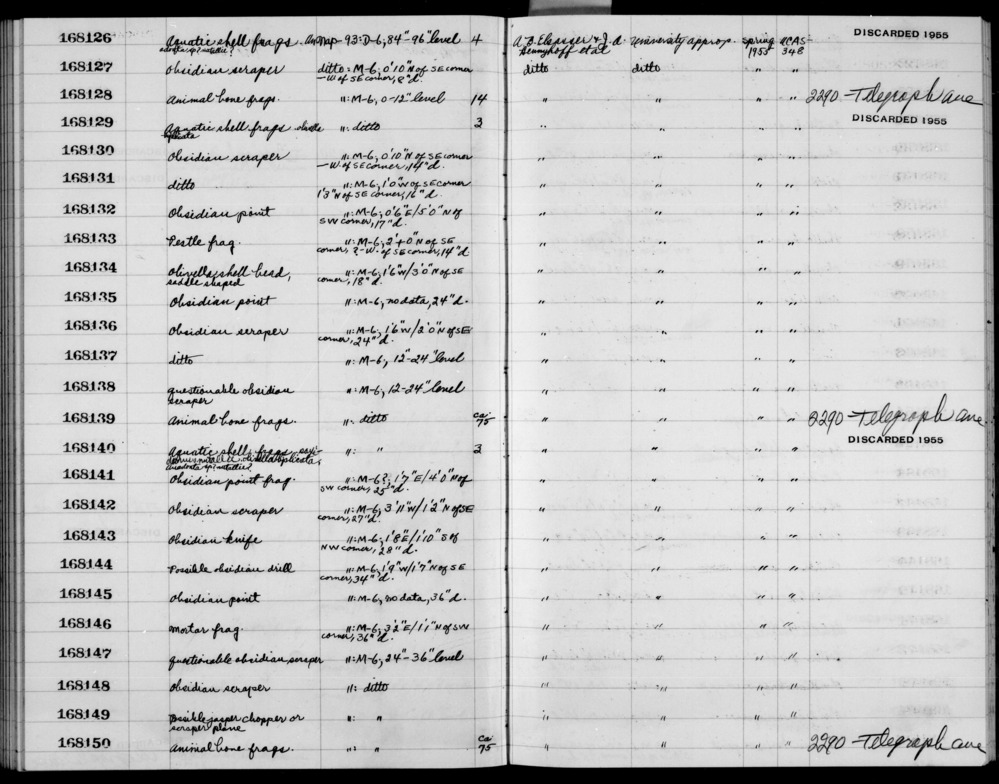 168126 Aquatic shell frags. Nap-93: D-6, 84"-96" level 4 A.B. Elsasser & J.A. Bennyhoff et al University approp. Spring 1955 UCAS-348 DISCARDED 1955
168127 Obsidian scraper ditto: M-6, 0'10" N of SE corner ditto ditto " "
— W of SE corner, 8" d.
168128 Animal bone frags. ": M-6, 0-12" level 14 " " " " 2290 Telegraph ave
168129 Aquatic shell frags ": ditto 3 " " " " DISCARDED 1955
168130 Obsidian scraper ": M-6, 0'10" N of SE corner " " " "
— W of SE corner, 14" d.
168131 ditto ": M-6, 1'0" W of SE corner " " " "
1'3" N of SE corner, 16" d.
168132 Obsidian point ": M-6, 0'6" E/5'0" N of " " " "
SW corner, 17" d.
168133 Pestle frag. ": M-6, 2'+0" N of SE " " " "
corner, ?-W. of SE corner, 14" d
168134 Olivella shell bead, ": M-6, 1'6" W/3'0" N of SE " " " "
saddle shaped corner, 18" d.
168135 Obsidian point ": M-6, no data, 24" d. " " " "
168136 Obsidian scraper ": M-6, 1'6" W/2'0" N of SE " " " "
corner, 24" d.
168137 ditto ": M-6, 12"-24" level " " " "
168138 questionable obsidian ": M-6, 12-24" level " " " "
scraper
168139 Animal bone frags. ": ditto ca. 75 " " " " 2290 Telegraph ave
168140 Aquatic shell frags ": " 2 " " " " DISCARDED 1955
168141 Obsidian point frag. ": M-6?, 1'7" E/4'0" N of " " " "
SW corner, 25" d.
168142 Obsidian scraper ": M-6, 3'11" W/1'2" N of SE " " " "
corner, 27" d.
168143 Obsidian knife ": M-6, 1'8" E/1'10" S of " " " "
NW corner, 28" d.
168144 Possible obsidian drill ": M-6, 1'9" W/1'7" N of SE " " " "
corner, 34" d.
168145 Obsidian point ": M-6, no data, 36" d. " " " "
168146 Mortar frag. ": M-6, 3'2" E/1'1" N of SW " " " "
corner, 36" d.
168147 questionable obsidian scraper ": M-6, 24"-36" level " " " "
168148 Obsidian scraper ": ditto " " " "
168149 Possible jasper chopper or ": " " " " "
scraper plane
168150 Animal bone frags. ": " ca 75 " " " " 2290 Telegraph ave